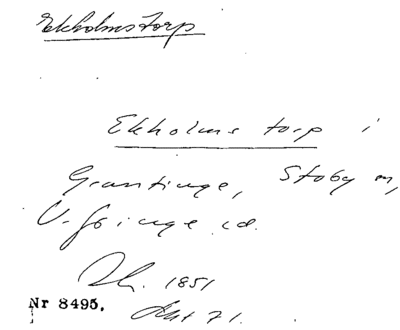 Ekholmstorp
Ekholms torp i
Grantinge, Stoby sn,
V. Göinge hd.
1851
Nr 8495. Akt 71.